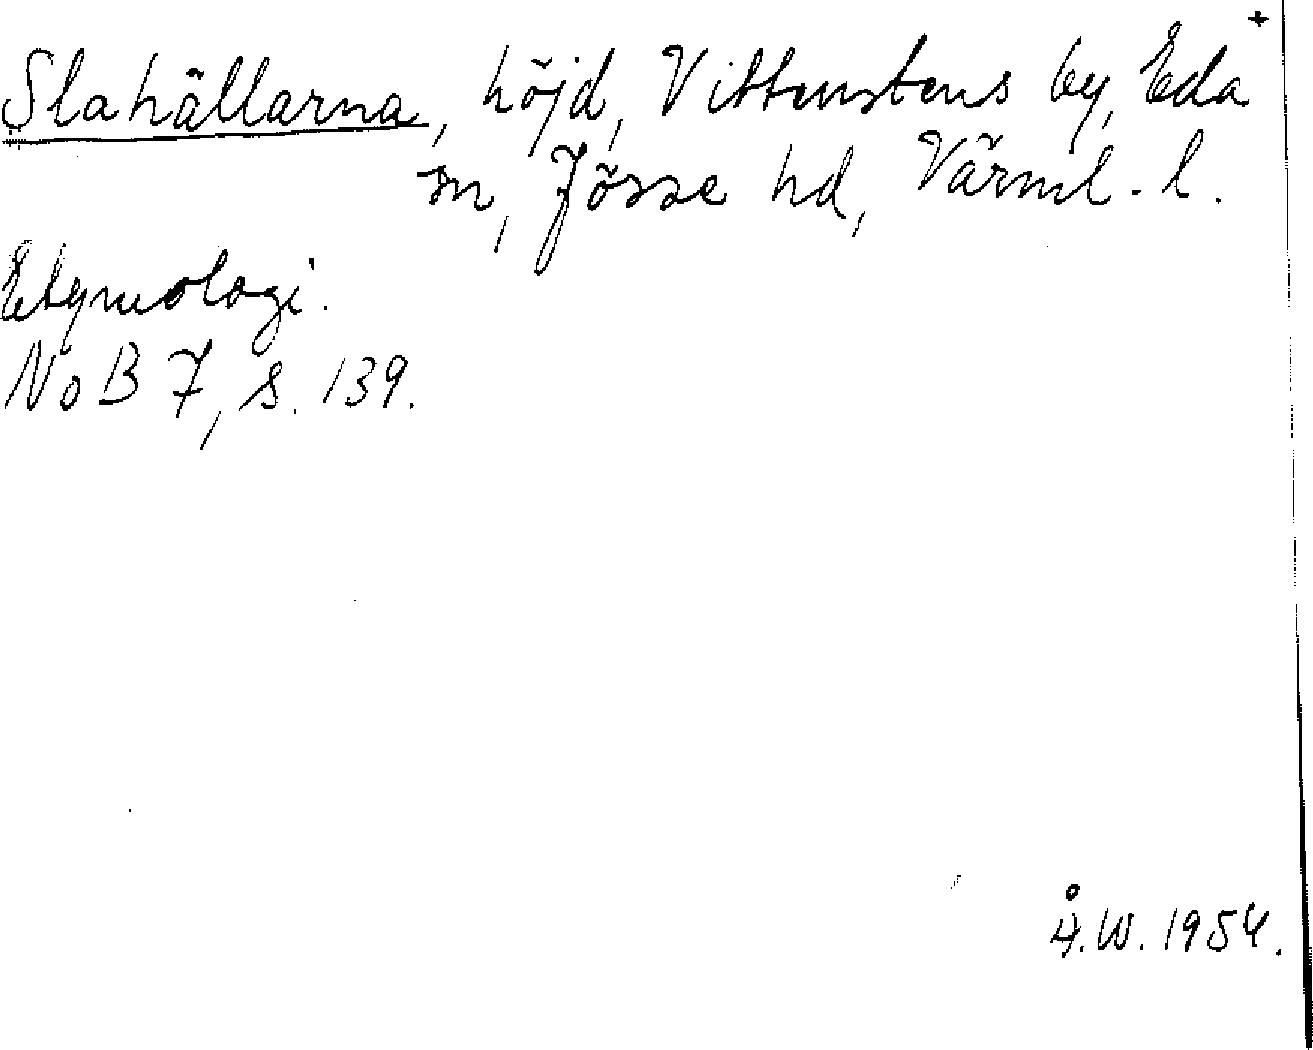 Slahällarna, höjd, Vittenstens by, Eda +
sn, Jösse hd, Värml. l.
Etymologi.
NoB 7, s. 139.
Å.W. 1954.